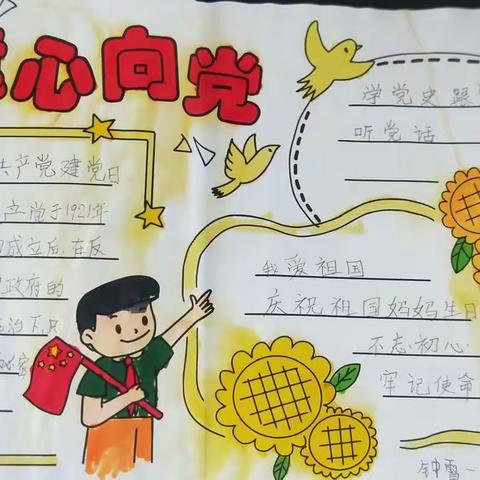 童心向党
共产党建党日
产党于1921年
成立后,在反
政府的
治下,只
家
学党史跟
听党话
我爱祖国
庆祝祖国妈妈生日
不忘初心
牢记使命
钟雪一